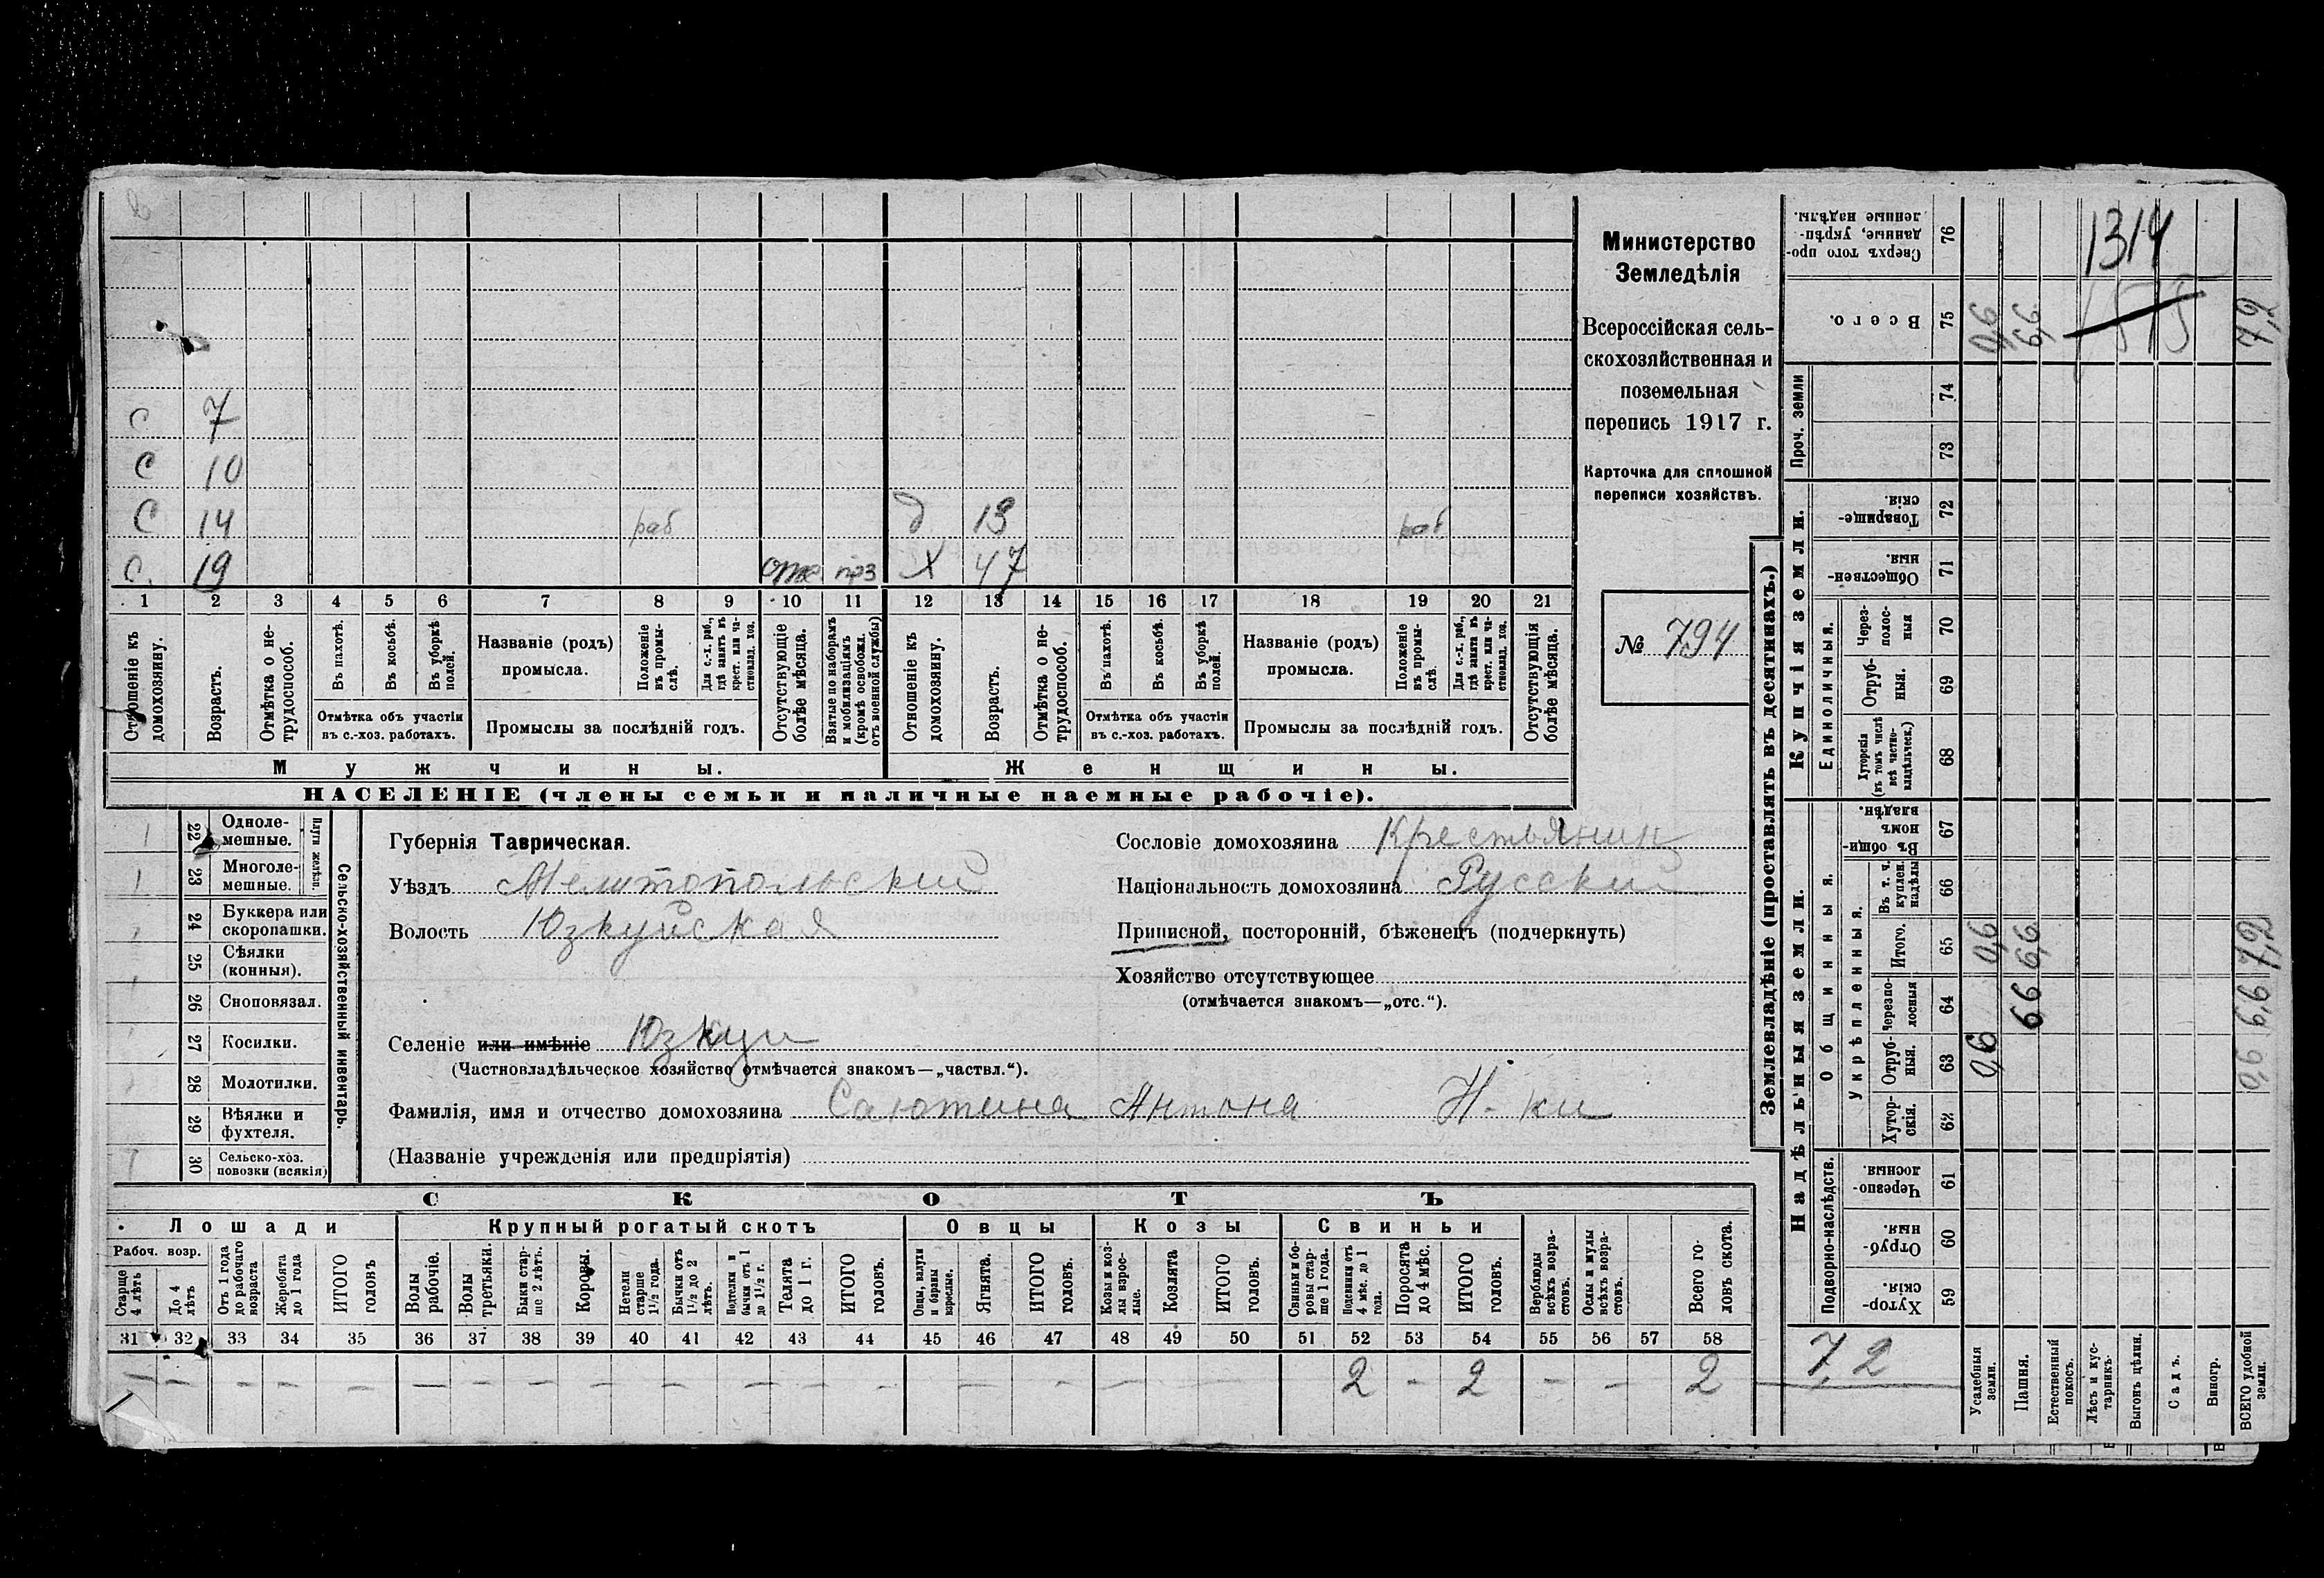 Министерство
Земледѣлія
Всероссійская сель-
скохозяйственная и
поземельная
перепись 1917 г.
Карточка для сплошной
переписи хозяйствъ.
№ 794
С 7
С 10
С 14 раб д 13 раб
С. 19 отс прз Х 47
1 2 3 4 5 6 7 8 9 10 11 12 13 14 15 16 17 18 19 20 21
Отношеніе къ домохозяину.
Возрастъ.
Отмѣтка о не-трудоспособ.
Въ пахотѣ.
Въ косьбѣ.
Въ уборкѣ полей.
Отмѣтка объ участіи
въ с.-хоз. работахъ.
Названіе (родъ)
промысла.
Положеніе въ промы-слѣ.
Для с.-х. раб., гдѣ занятъ въ крест. или ча-стновлад. хоз.
Промыслы за послѣдній годъ.
Отсутствующіе болѣе мѣсяца.
Взятые по наборамъ и мобилизаціямъ (кромѣ освобожд. отъ военной службы)
Отношеніе къ домохозяину.
Возрастъ.
Отмѣтка о не-трудоспособ.
Въ пахотѣ.
Въ косьбѣ.
Въ уборкѣ полей.
Отмѣтка объ участіи
въ с.-хоз. работахъ.
Названіе (родъ)
промысла.
Положеніе въ промы-слѣ
Для с.-х. раб., гдѣ занятъ въ крест. или ча-стновлад. хоз.
Промыслы за послѣдній годъ.
Отсутствующія болѣе мѣсяца.
Мужчины. Женщины.
НАСЕЛЕНІЕ (члены семьи и наличные наемные рабочіе).
22 Одноле-мешные.
23 Многоле-мешные.
Плуги желѣзн.
24 Буккера или скоропашки.
25 Сѣялки (конныя).
26 Сноповязал.
27 Косилки.
28 Молотилки.
29 Вѣялки и фухтеля.
30 Сельско-хоз. повозки (всякія)
Сельско-хозяйственный инвентарь.
Губернія Таврическая.
Уѣздъ Мелитопольский
Волость Юзкуйская
Селеніе или имѣніе Юзкуи
(Частновладѣльческое хозяйство отмѣчается знакомъ—„частвл.“).
Фамилія, имя и отчество домохозяина Саютина Антона Н-ки
(Названіе учрежденія или предпріятія)
Сословіе домохозяина Крестьянин
Національность домохозяина Русский
Приписной, посторонній, бѣженецъ (подчеркнуть)
Хозяйство отсутствующее
(отмѣчается знакомъ—„отс.“).
СКОТЪ
Лошади Крупный рогатый скотъ Овцы Козы Свиньи
Рабоч. возр.
Старше 4 лѣтъ
До 4 лѣтъ
Отъ 1 года до рабочаго возраста
Жеребята до 1 года
ИТОГО головъ
Волы рабочіе.
Волы третьяки.
Быки стар-ше 2 лѣтъ.
Коровы.
Нетели старше 1½ года.
Бычки отъ 1½ до 2 лѣтъ.
Подтелки и бычки отъ 1 до 1½ г.
Телята до 1 г.
ИТОГО головъ.
Овцы, валухи и бараны взрослые.
Ягнята.
ИТОГО головъ.
Козы и коз-лы взрос-лые.
Козлята
ИТОГО головъ.
Свиньи и бо-ровы стар-ше 1 года.
Подсвинки отъ 4 мѣс. до 1 года.
Поросята до 4 мѣс.
ИТОГО головъ.
Верблюды всѣхъ возра-стовъ.
Ослы и мулы всѣхъ возра-стовъ.
Всего го-ловъ скота.
31 32 33 34 35 36 37 38 39 40 41 42 43 44 45 46 47 48 49 50 51 52 53 54 55 56 57 58
— — — — — — — — — — — — — — — — — — — 2 - 2 — — 2
Землевладѣніе (проставлять въ десятинахъ.)
Надѣльныя земли. Купчія земли.
Проч. земли
Подворно-наслѣдств.
Общинныя.
Укрѣпленныя.
Единоличныя.
Сверхъ того про-данные, укрѣп-ленные надѣлы. 76
Всего. 75 0,6 6,6 7,2
74
73
Товарище-скія. 72
Обществен-ныя 71
Через-полос-ныя 70
Отруб-ныя. 69
Хуторскія (въ томъ числѣ всѣ частно-владѣльческ.) 68
Въ общин-номъ владѣн. 67
Въ т. ч. куплен. надѣлы 66
Итого. 65 0,6 6,6 7,2
Черезпо-лосныя 64 6,6 6,6
Отруб-ныя. 63 0,6 0,6
Хутор-скія. 62
Черезпо-лосныя. 61
Отруб-ныя. 60
Хутор-скія. 59
1314
1515
7,2
Усадебныя земли.
Пашня.
Естественный покосъ.
Лѣсъ и кус-тарникъ.
Выгонъ цѣлин.
Садъ.
Виногр.
ВСЕГО удобной земли.